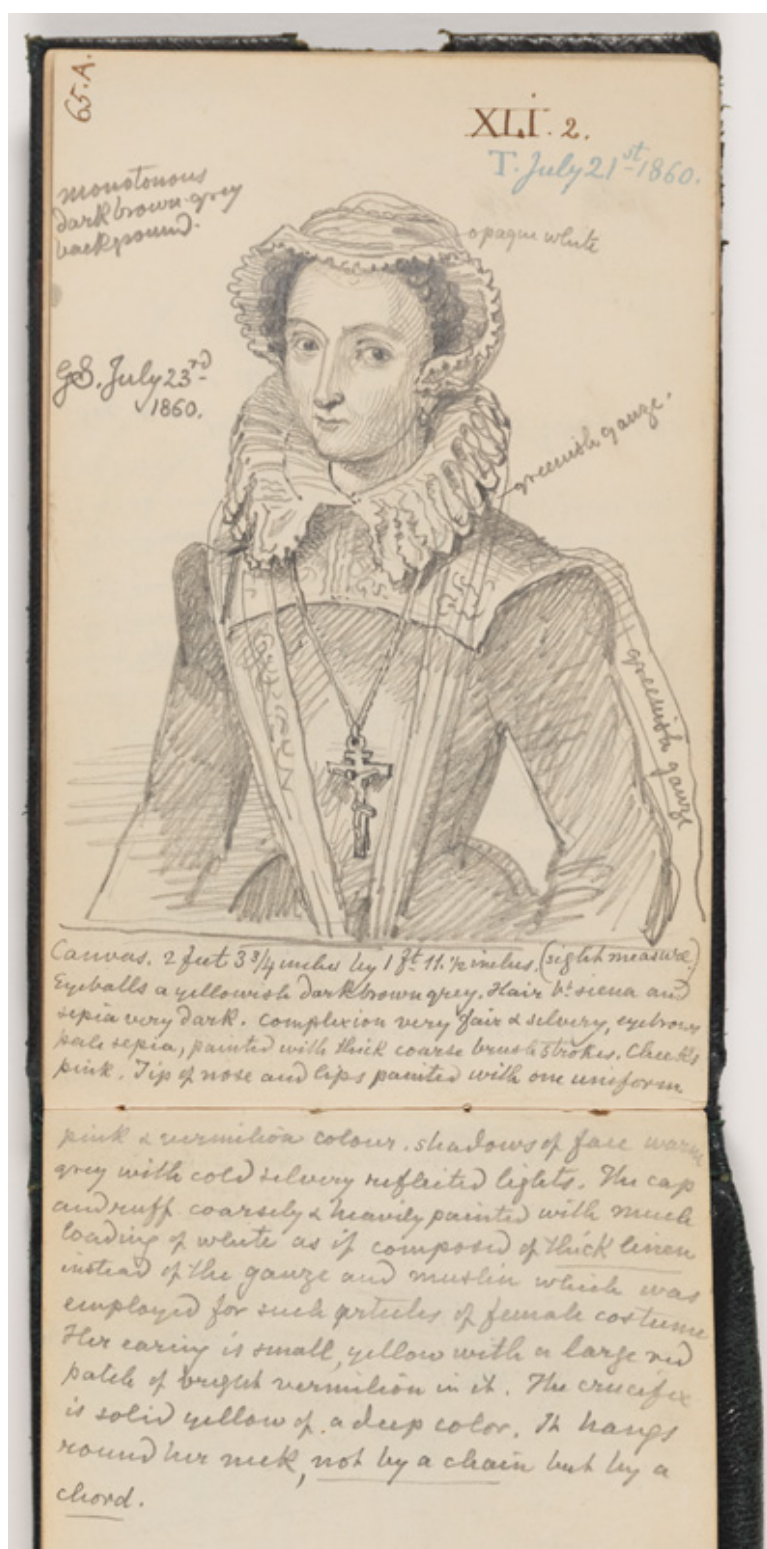 65.A.
XLI. 2.
T. July 21st 1860.
monotonous
dark brown-grey
background.
opaque white
GS. July 23rd
1860.
greenish gauze.
greenish gauze
Canvas. 2 feet 3 3/4 inches by 1 ft 11. 1/2 inches. (sight measure.)
Eyeballs a yellowish dark brown grey. Hair bt siena and
sepia very dark. Complexion very fair & silvery, eyebrows
pale sepia, painted with thick coarse brush strokes. Cheeks
pink. Tip of nose and lips painted with one uniform
pink & vermilion colour. shadows of face warm
grey with cold silvery reflected lights. The cap
and ruff coarsely & heavily painted with much
loading of white as if composed of thick linen
instead of the gauze and muslin which was
employed for such articles of female costume
Her earing is small, yellow with a large red
patch of bright vermilion in it. The crucifix
is solid yellow of a deep color. It hangs
round her neck, not by a chain but by a
chord.